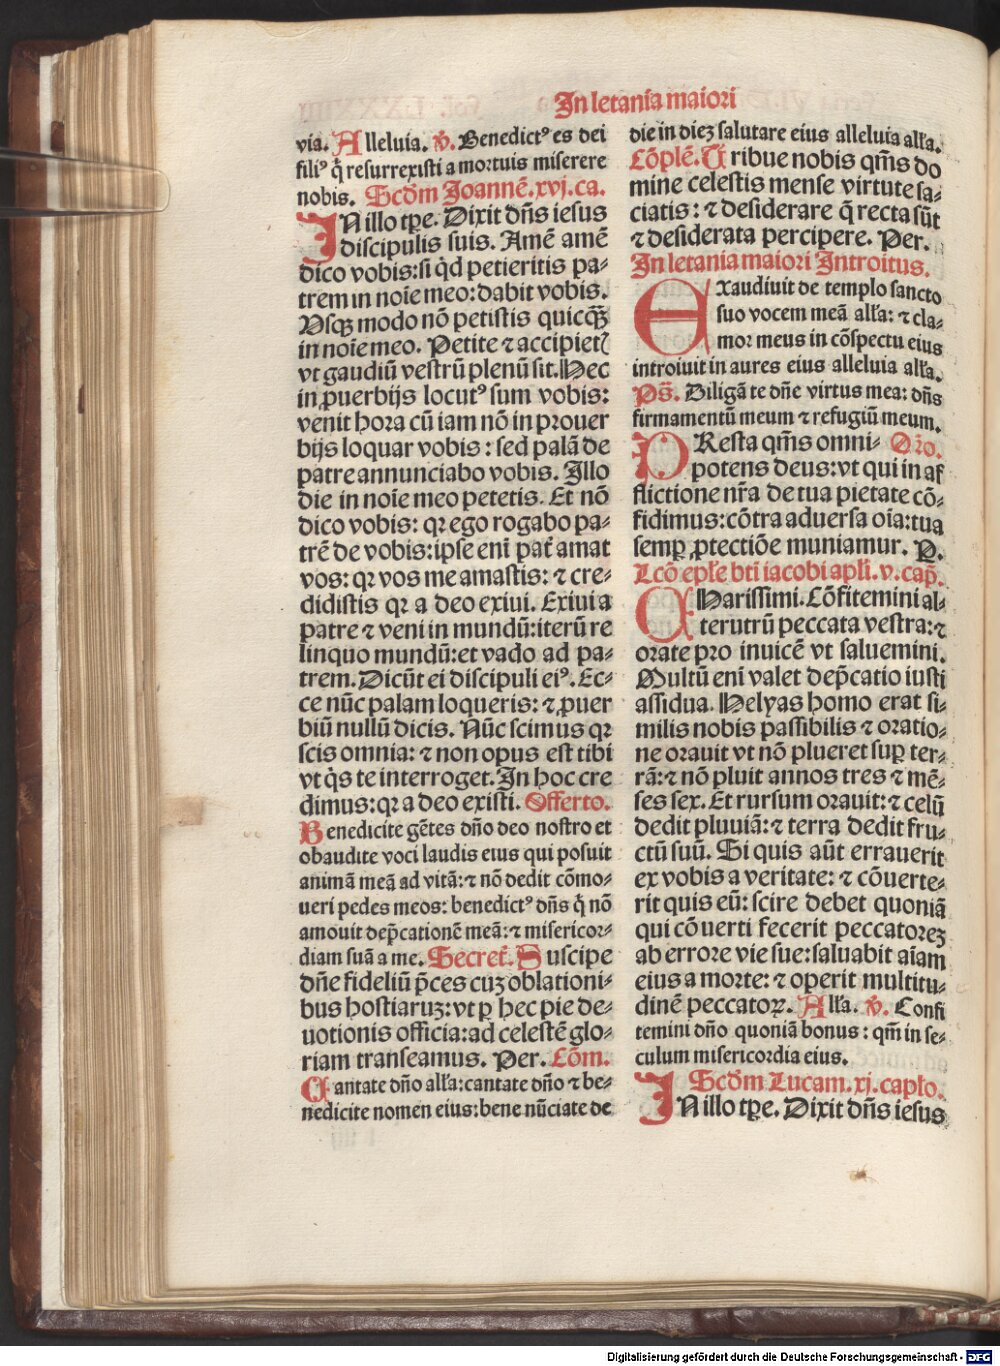 In letania maiori
via. Alleluia. v̄. Benedictꝰ es dei
filiꝰ q̄ resurrexisti a mortuis miserere
nobis. Scd̄m Joannē. xvj. ca.
IN illo tꝑe. Dixit dn̄s iesus
discipulis suis. Amē amē
dico vobis: si qͥd petieritis pa⸗
trem in noīe meo: dabit vobis.
Vsqꝫ modo nō petistis quicqꝫ
in noīe meo. Petite ⁊ accipietꝭ
vt gaudiū vestrū plenū sit. Hec
in ꝓuerbijs locutꝰ sum vobis:
venit hora cū iam nō in prouer
bijs loquar vobis: sed palā de
patre annunciabo vobis. Illo
die in noīe meo petetis. Et nō
dico vobis: qꝛ ego rogabo pa⸗
trē de vobis: ipse enī pat̄ amat
vos: qꝛ vos me amastis: ⁊ cre⸗
didistis qꝛ a deo exiui. Exiui a
patre ⁊ veni in mundū: iterū re
linquo mundū: et vado ad pa⸗
trem. Dicūt ei discipuli eiꝰ. Ec⸗
ce nūc palam loqueris: ⁊ ꝓuer
biū nullū dicis. Nūc scimus qꝛ
scis omnia: ⁊ non opus est tibi
vt qͥs te interroget. In hoc cre
dimus: qꝛ a deo existi. Offerto.
Benedicite gētes dn̄o deo nostro et
obaudite voci laudis eius qui posuit
animā meā ad vitā: ⁊ nō dedit cōmo⸗
ueri pedes meos: benedictꝰ dn̄s q̄ nō
amouit dep̄cationē meā: ⁊ misericor⸗
diam suā a me. Secret̄. Suscipe
dn̄e fideliū p̄ces cuꝫ oblationi⸗
bus hostiaruꝫ: vt ꝑ hec pie de⸗
uotionis officia: ad celestē glo⸗
riam transeamus. Per. Cōm.
Cantate dn̄o alła: cantate dn̄o ⁊ be⸗
nedicite nomen eius: bene nūciate de
die in dieꝫ salutare eius alleluia alła.
Cōplē. Tribue nobis qm̄s do
mine celestis mense virtute sa⸗
ciatis: ⁊ desiderare q̄ recta sūt
⁊ desiderata percipere. Per.
In letania maiori Introitus.
Exaudiuit de templo sancto
suo vocem meā alła: ⁊ cla⸗
mor meus in cōspectu eius
introiuit in aures eius alleluia alła.
Ps̄. Diligā te dn̄e virtus mea: dn̄s
firmamentū meum ⁊ refugiū meum.
PResta qm̄s omni⸗ Oro.
potens deus: vt qui in af
flictione nr̄a de tua pietate cō⸗
fidimus: cōtra aduersa oīa: tua
semꝑ ꝓtectiōe muniamur. P.
Lcō epłe btī iacobi apłi. v. cap̄.
CHarissimi. Cōfitemini al⸗
terutrū peccata vestra: ⁊
orate pro inuicē vt saluemini.
Multū enī valet dep̄catio iusti
assidua. Helyas homo erat si⸗
milis nobis passibilis ⁊ oratio⸗
ne orauit vt nō plueret suꝑ ter⸗
rā: ⁊ nō pluit annos tres ⁊ mē⸗
ses sex. Et rursum orauit: ⁊ celū
dedit pluuiā: ⁊ terra dedit fru⸗
ctū suū. Si quis aūt errauerit
ex vobis a veritate: ⁊ cōuerte⸗
rit quis eū: scire debet quoniā
qui cōuerti fecerit peccatoreꝫ
ab errore vie sue: saluabit aīam
eius a morte: ⁊ operit multitu⸗
dinē peccatoꝝ. Alła. v̄. Confi
temini dn̄o quoniā bonus: qm̄ in se⸗
culum misericordia eius.
Scd̄m Lucam. xj. capło.
IN illo tꝑe. Dixit dn̄s iesus
Digitalisierung gefördert durch die Deutsche Forschungsgemeinschaft - DFG